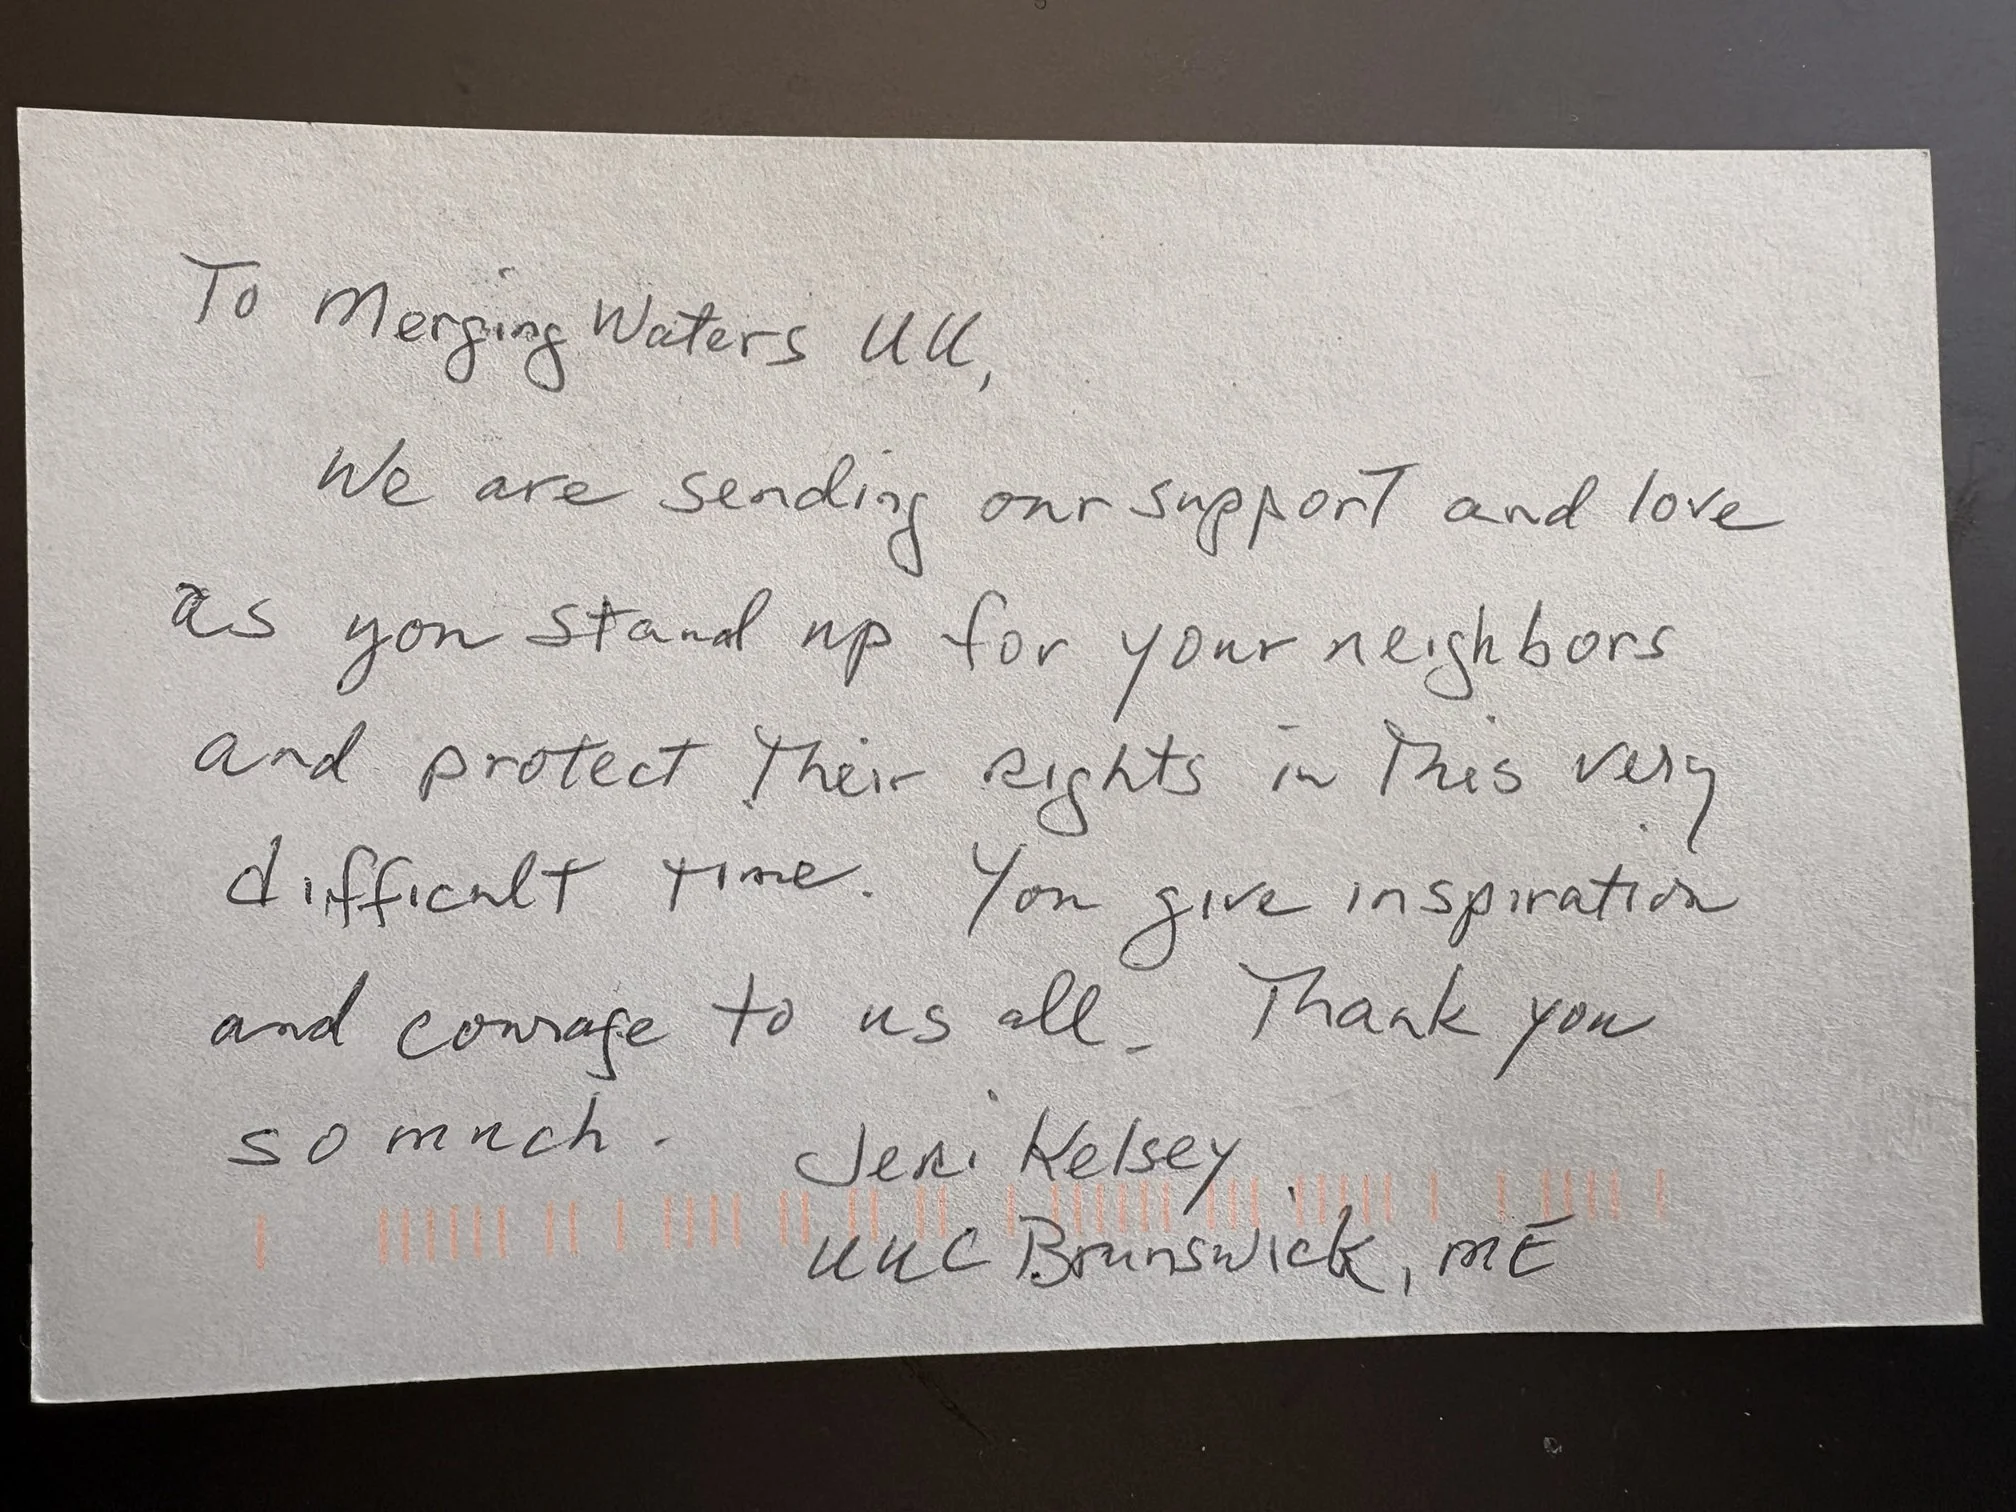 To Merging Waters UU,
We are sending our support and love
as you stand up for your neighbors
and protect their rights in this very
difficult time. You give inspiration
and courage to us all. Thank you
so much. Jeri Kelsey
UUC Brunswick, ME